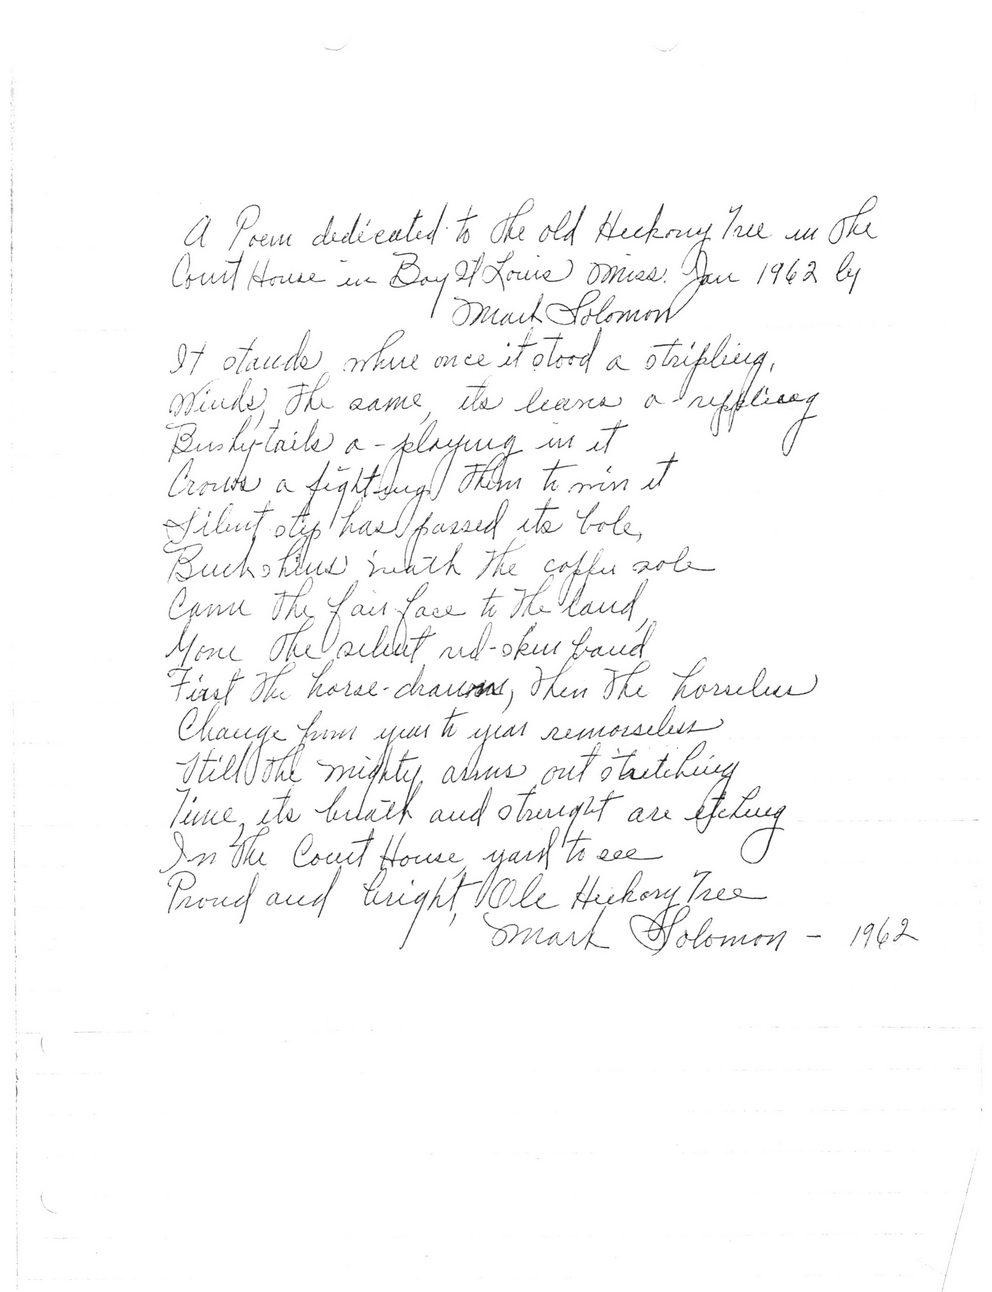 A Poem dedicated to the old Hickory Tree in the
Court House in Bay St Louis Miss. Jan 1962 by
Mark Solomon
It stands where once it stood a stripling,
Winds, the same, its leaves a-rippling
Bushy-tails a-playing in it
Crows a fighting them to win it
Silent step has passed its bole,
Buckskins 'neath the copper sole
Came the fair face to the land,
Gone the silent red-skin band
First the horse-drawns, then the horseless
Change from year to year remorseless
Still the mighty arms out stretching
Time, its breath and strenght are etching
In the Court House yard to see
Proud and bright, Ole Hickory Tree
Mark Solomon - 1962